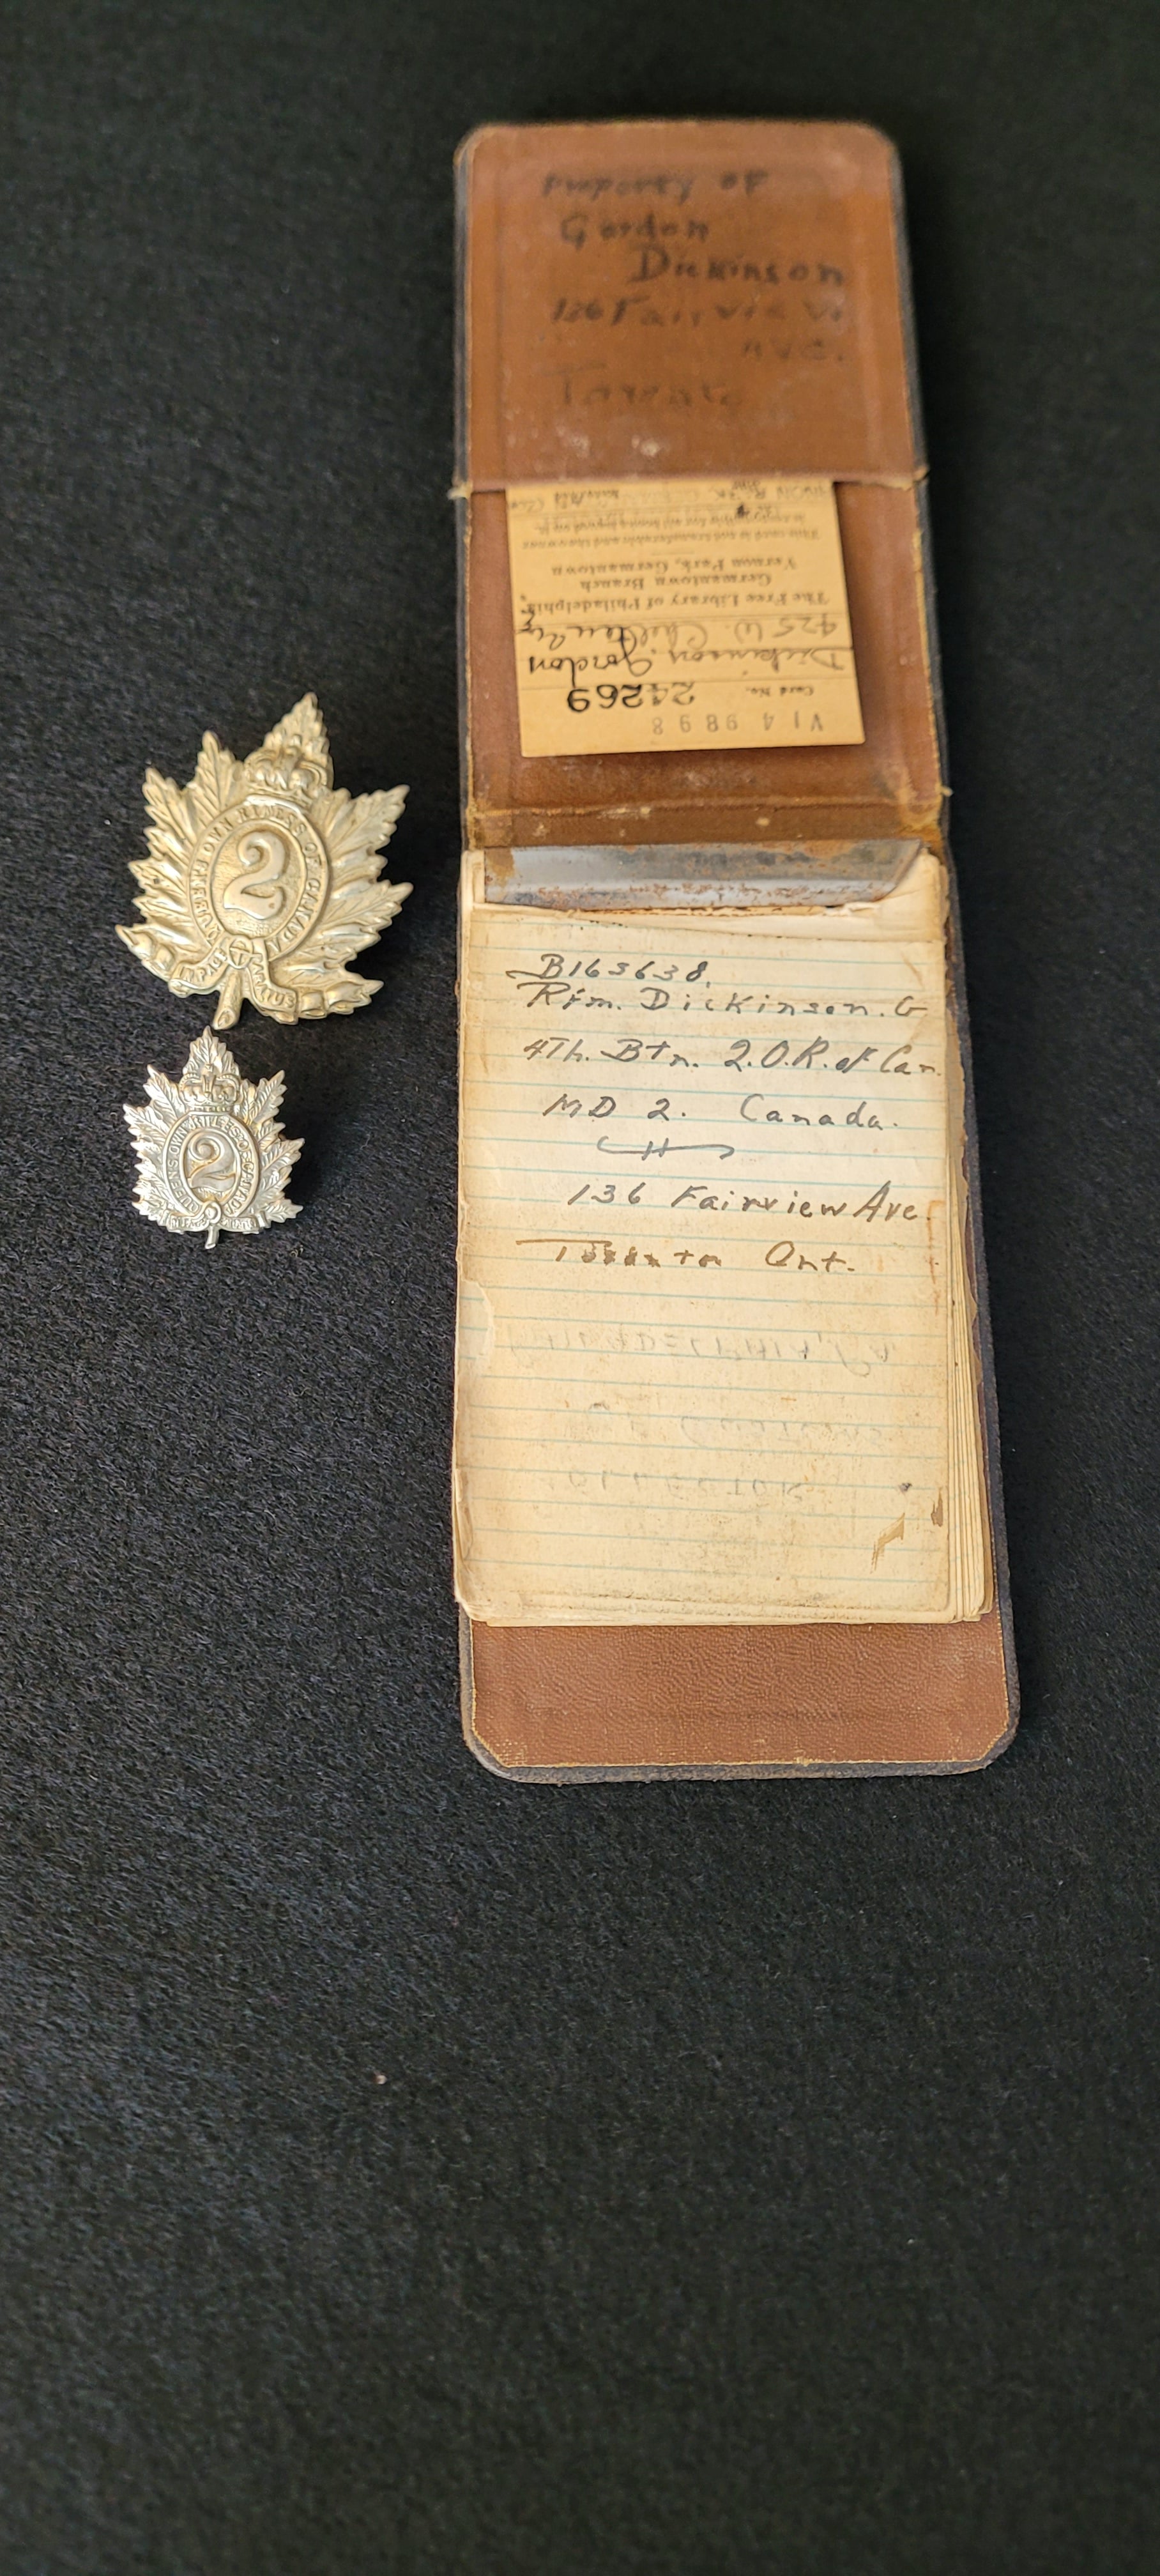 Property of
Gordon
Dickinson
136 Fairview
Ave.
Toronto
This card is not transferable and the owner
is responsible for all books drawn
Vernon Park, Germantown
Germantown Branch
The Free Library of Philadelphia
425 W. Chelten Av
Dickinson, Gordon
Card No. 24269
V149898
2
QUEEN'S OWN RIFLES OF CANADA
IN PACE PARATUS
2
QUEEN'S OWN RIFLES OF CANADA
B163638.
Rfm. Dickinson. G
4Th. Btn. Q.O.R. of Can.
MD 2. Canada.
136 Fairview Ave.
Toronto Ont.
PHILADELPHIA, PA
OF CUSTOMS
COLLECTOR